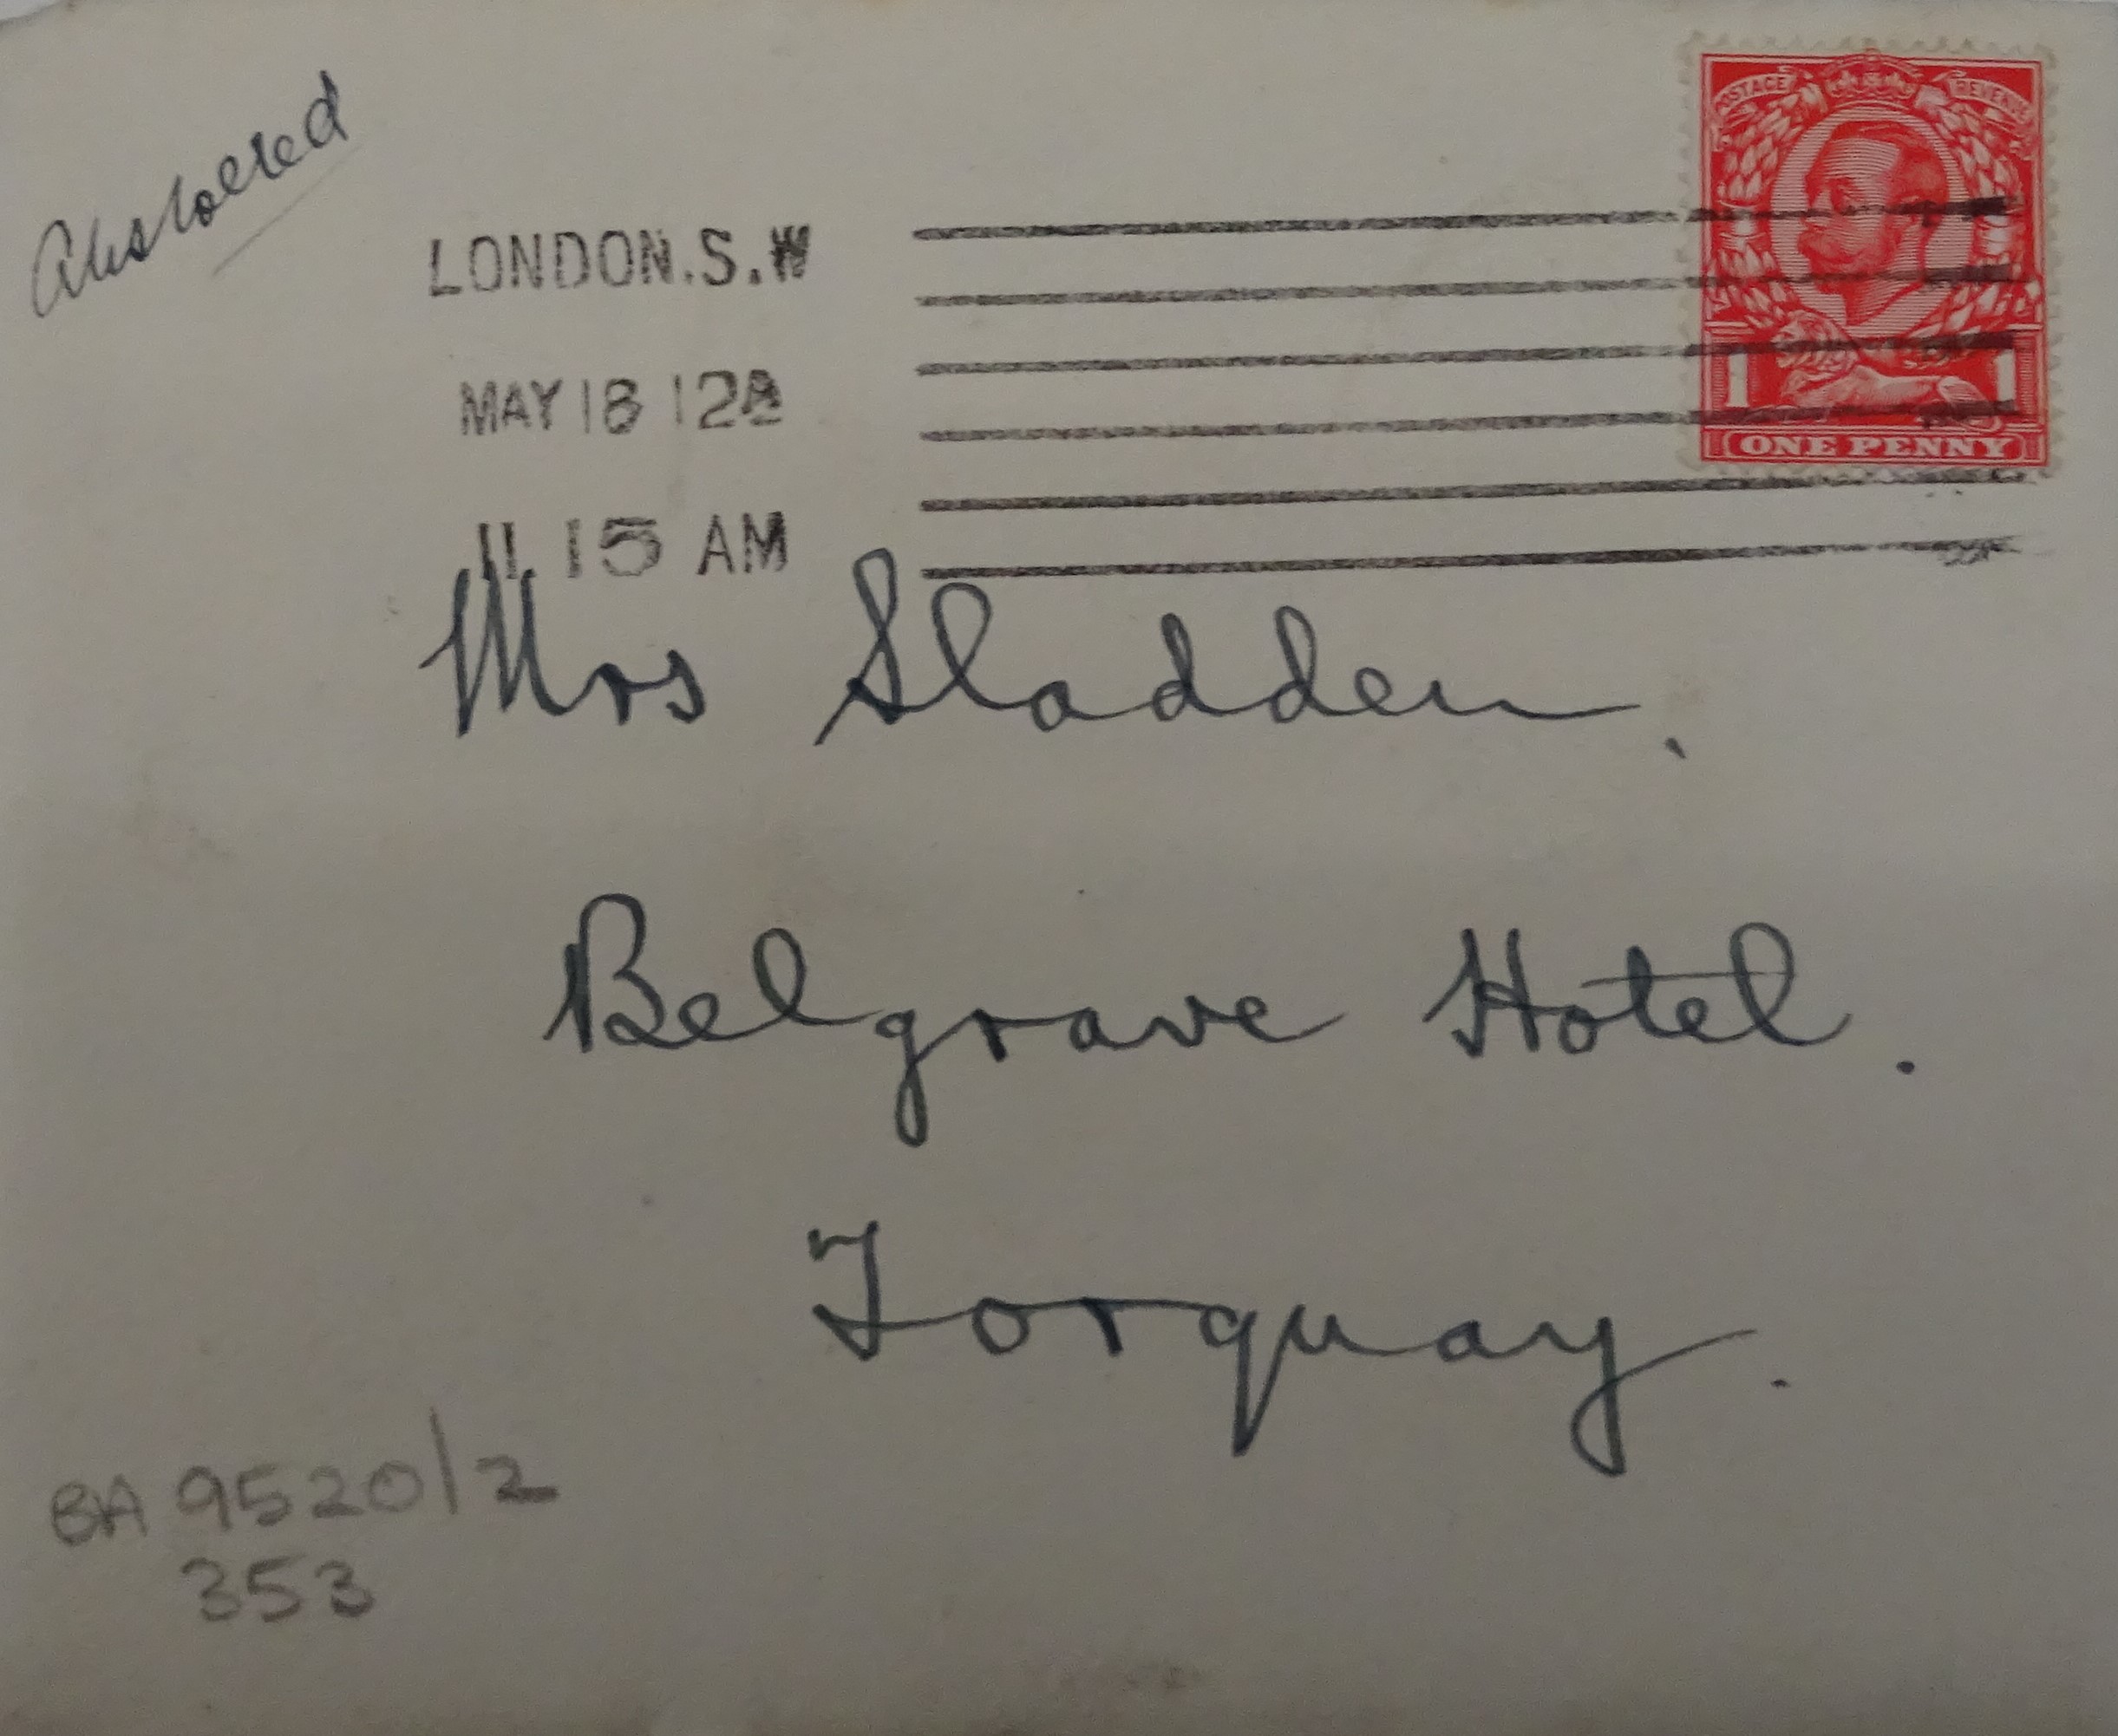 answered
LONDON.S.W
MAY 18 12
11 15 AM
POSTAGE REVENUE
1 1
ONE PENNY
Mrs Sladden,
Belgrave Hotel.
Torquay.
BA 9520/2
353